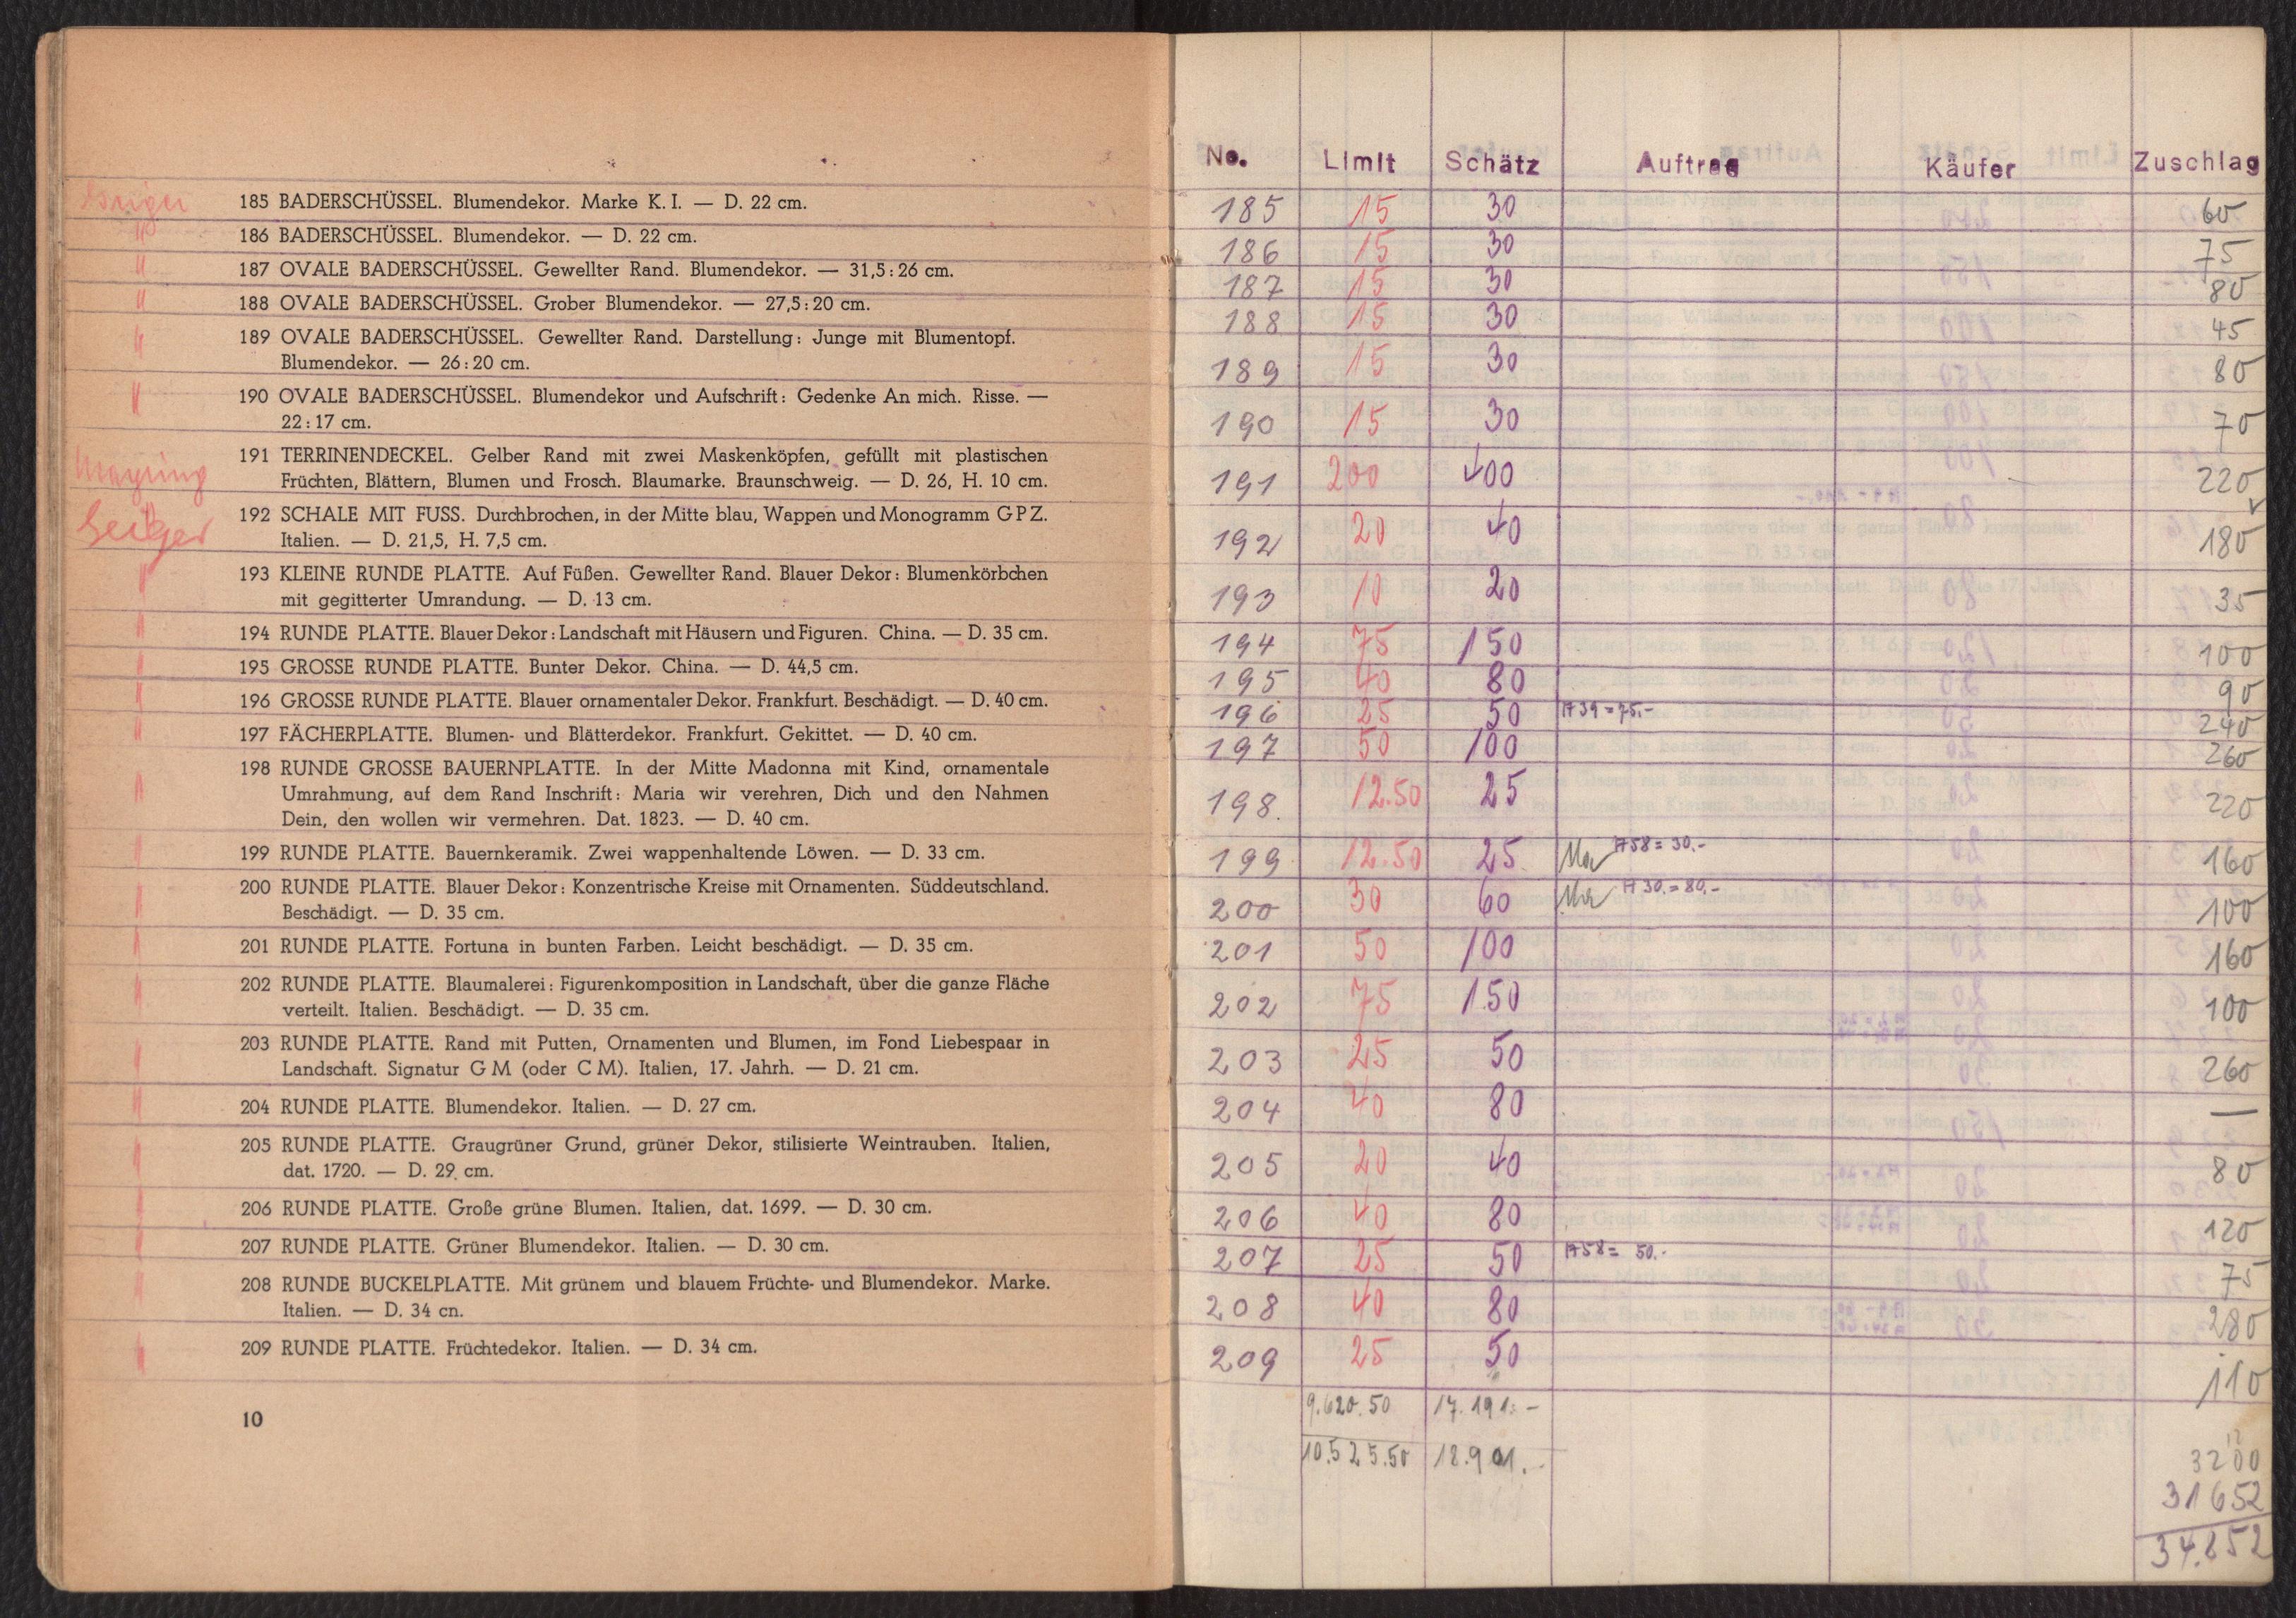 185 BADERSCHÜSSEL. Blumendekor. Marke K. I. — D. 22 cm.
186 BADERSCHÜSSEL. Blumendekor. — D. 22 cm.
187 OVALE BADERSCHÜSSEL. Gewellter Rand. Blumendekor. — 31,5 : 26 cm.
188 OVALE BADERSCHÜSSEL. Grober Blumendekor. — 27,5 : 20 cm.
189 OVALE BADERSCHÜSSEL. Gewellter Rand. Darstellung: Junge mit Blumentopf.
Blumendekor. — 26 : 20 cm.
190 OVALE BADERSCHÜSSEL. Blumendekor und Aufschrift: Gedenke An mich. Risse. —
22 : 17 cm.
Mayring
191 TERRINENDECKEL. Gelber Rand mit zwei Maskenköpfen, gefüllt mit plastischen
Früchten, Blättern, Blumen und Frosch. Blaumarke. Braunschweig. — D. 26, H. 10 cm.
192 SCHALE MIT FUSS. Durchbrochen, in der Mitte blau, Wappen und Monogramm G P Z.
Italien. — D. 21,5, H. 7,5 cm.
193 KLEINE RUNDE PLATTE. Auf Füßen. Gewellter Rand. Blauer Dekor: Blumenkörbchen
mit gegitterter Umrandung. — D. 13 cm.
194 RUNDE PLATTE. Blauer Dekor: Landschaft mit Häusern und Figuren. China. — D. 35 cm.
195 GROSSE RUNDE PLATTE. Bunter Dekor. China. — D. 44,5 cm.
196 GROSSE RUNDE PLATTE. Blauer ornamentaler Dekor. Frankfurt. Beschädigt. — D. 40 cm.
197 FÄCHERPLATTE. Blumen- und Blätterdekor. Frankfurt. Gekittet. — D. 40 cm.
198 RUNDE GROSSE BAUERNPLATTE. In der Mitte Madonna mit Kind, ornamentale
Umrahmung, auf dem Rand Inschrift: Maria wir verehren, Dich und den Nahmen
Dein, den wollen wir vermehren. Dat. 1823. — D. 40 cm.
199 RUNDE PLATTE. Bauernkeramik. Zwei wappenhaltende Löwen. — D. 33 cm.
200 RUNDE PLATTE. Blauer Dekor: Konzentrische Kreise mit Ornamenten. Süddeutschland.
Beschädigt. — D. 35 cm.
201 RUNDE PLATTE. Fortuna in bunten Farben. Leicht beschädigt. — D. 35 cm.
202 RUNDE PLATTE. Blaumalerei: Figurenkomposition in Landschaft, über die ganze Fläche
verteilt. Italien. Beschädigt. — D. 35 cm.
203 RUNDE PLATTE. Rand mit Putten, Ornamenten und Blumen, im Fond Liebespaar in
Landschaft. Signatur G M (oder C M). Italien, 17. Jahrh. — D. 21 cm.
204 RUNDE PLATTE. Blumendekor. Italien. — D. 27 cm.
205 RUNDE PLATTE. Graugrüner Grund, grüner Dekor, stilisierte Weintrauben. Italien,
dat. 1720. — D. 29 cm.
206 RUNDE PLATTE. Große grüne Blumen. Italien, dat. 1699. — D. 30 cm.
207 RUNDE PLATTE. Grüner Blumendekor. Italien. — D. 30 cm.
208 RUNDE BUCKELPLATTE. Mit grünem und blauem Früchte- und Blumendekor. Marke.
Italien. — D. 34 cn.
209 RUNDE PLATTE. Früchtedekor. Italien. — D. 34 cm.
10
No. Limit Schätz Auftrag Käufer Zuschlag
185 15 30 60
186 15 30 75
187 15 30 80
188 15 30 45
189 15 30 80
190 15 30 70
191 200 400 220
192 20 40 180
193 10 20 35
194 75 150 100
195 40 80 90
196 25 50 A 39 = 75.- 240
197 50 100 260
198. 12.50 25 220
199 12.50 25 A 58 = 30.- 160
200 30 60 A 30. = 80.- 100
201 50 100 160
202 75 150 100
203 25 50 260
204 40 80 —
205 20 40 80
206 40 80 120
207 25 50 A 58 = 50.- 75
208 40 80 280
209 25 50 110
9.620.50 17.191.-
10.525.50 18.901.-
3200
31652
34.852